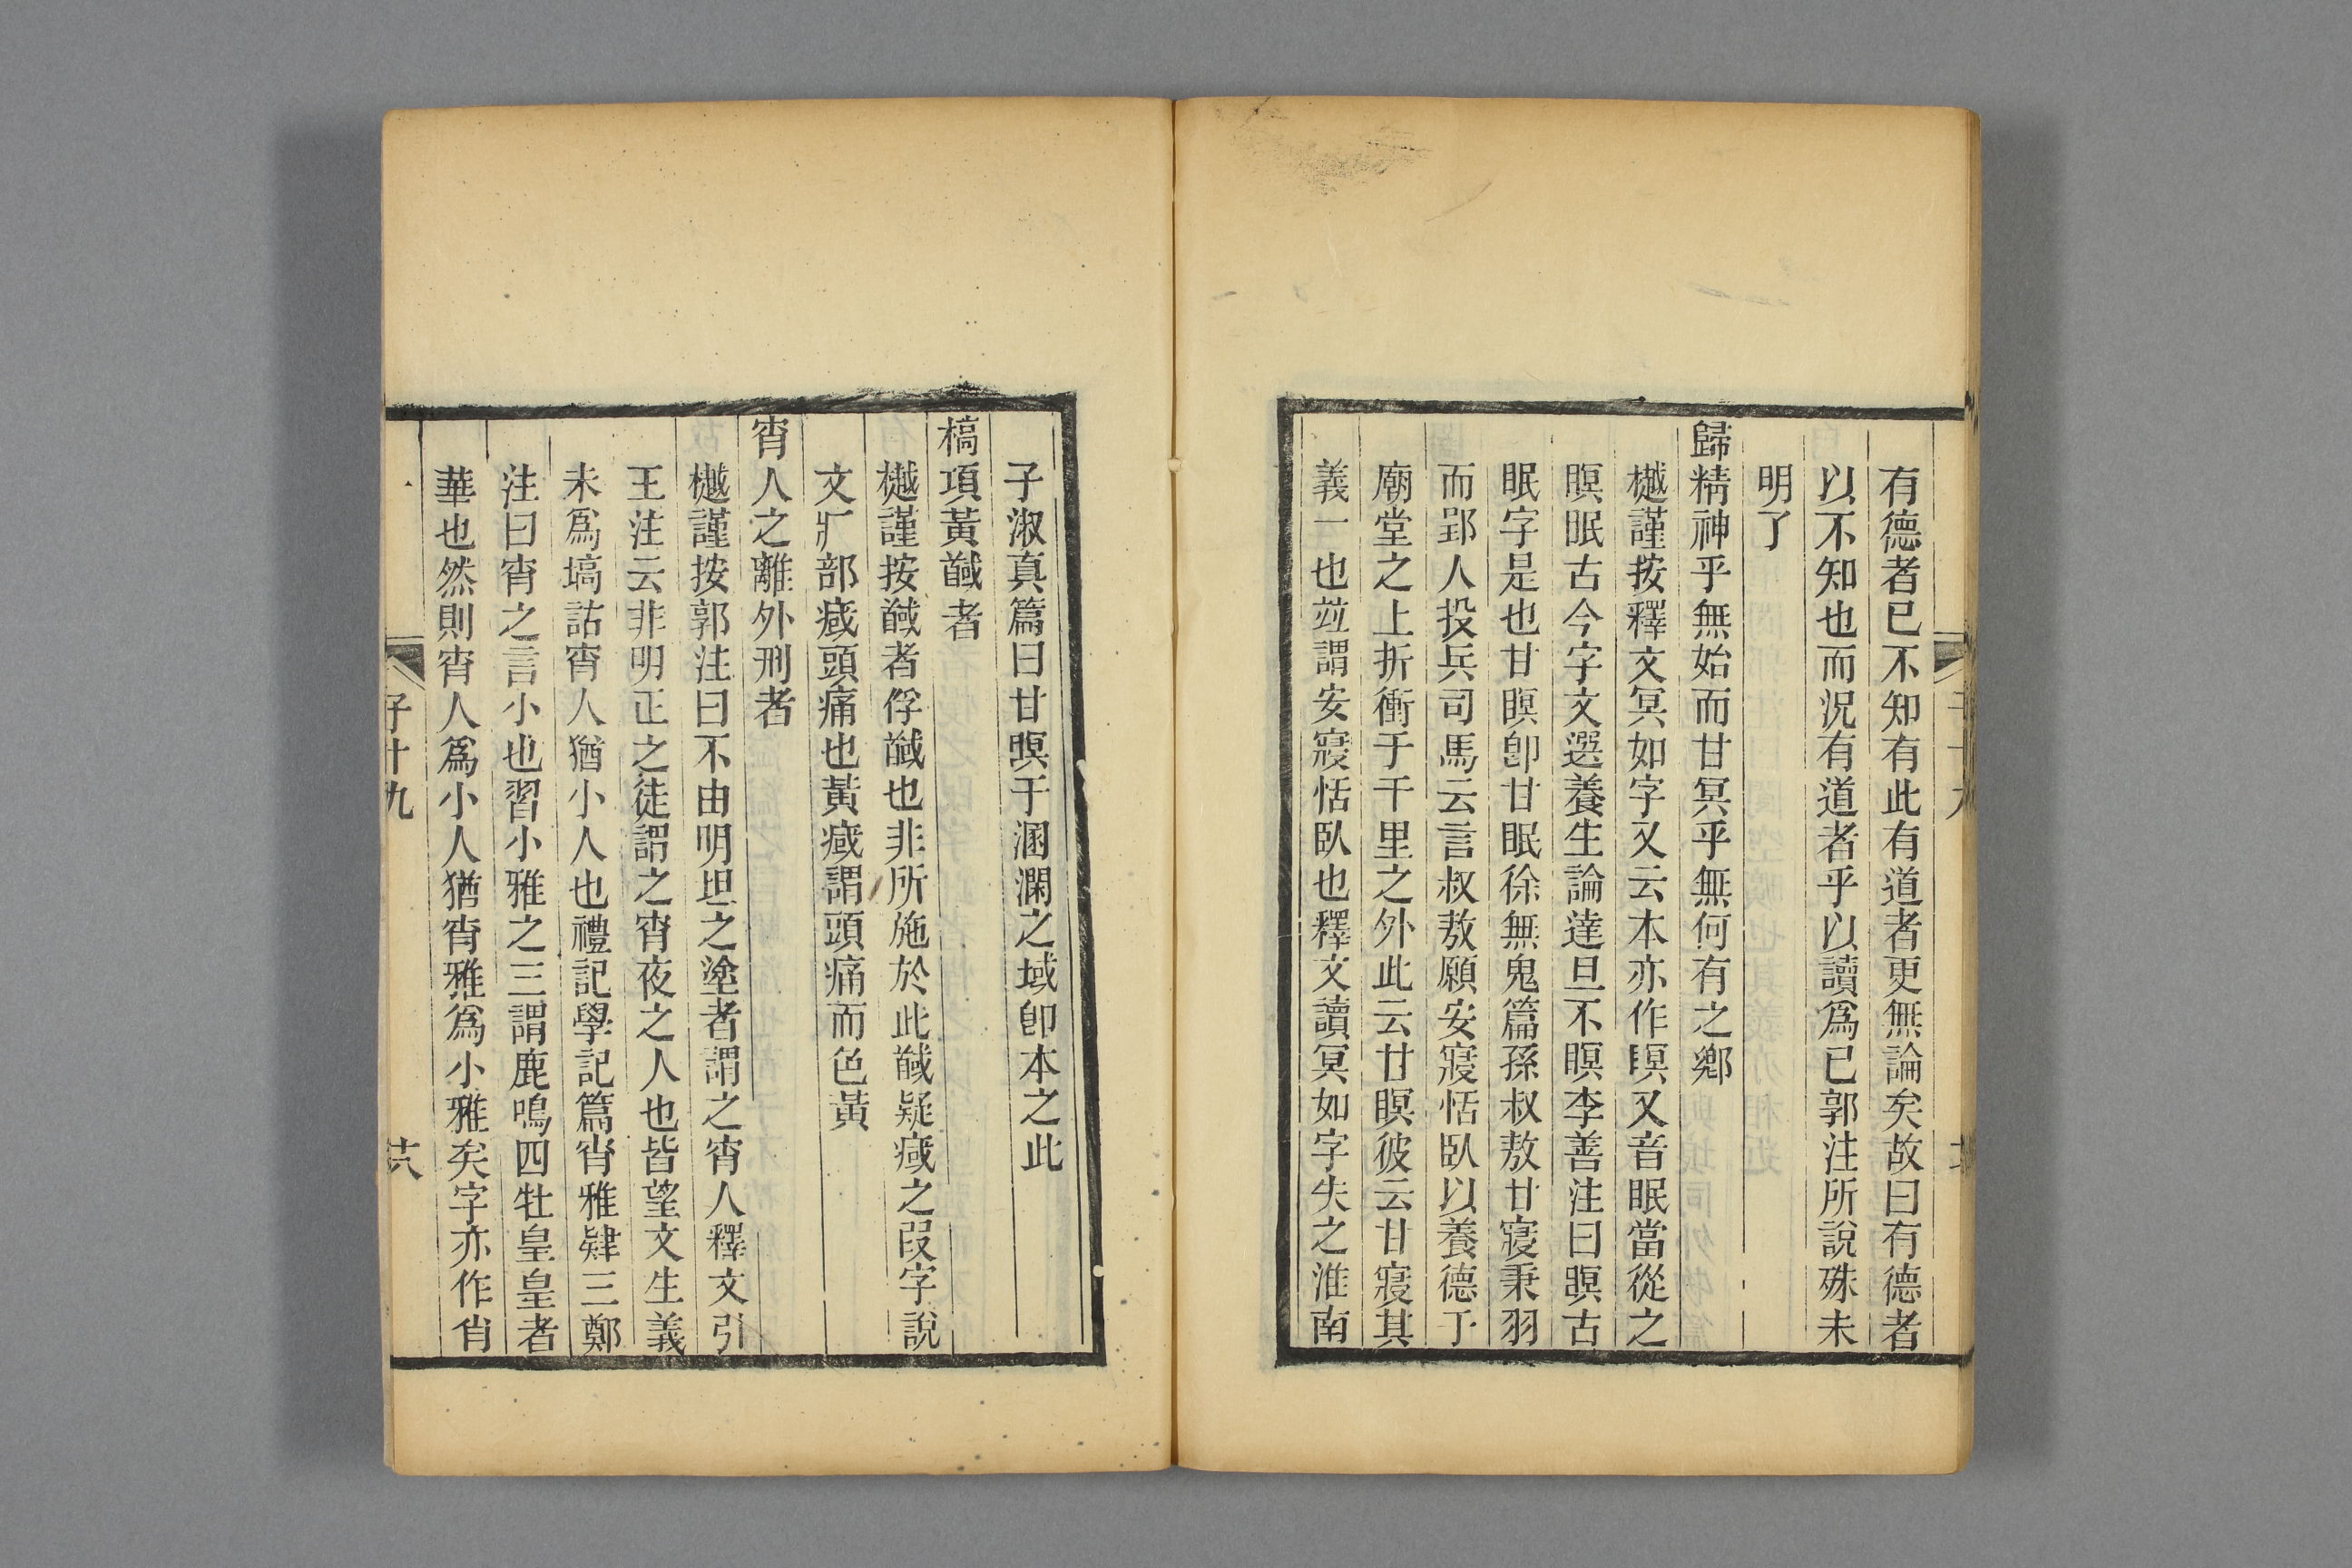 有德者已不知有此有道者更無論矣故曰有德者
以不知也而況有道者乎以讀爲已郭注所說殊未
明了
歸精神乎無始而甘冥乎無何有之鄉
樾謹按釋文冥如字又云本亦作瞑又音眠當從之
瞑眠古今字文選養生論達旦不瞑李善注曰瞑古
眠字是也甘瞑卽甘眠徐無鬼篇孫叔敖甘寢秉羽
而郢人投兵司馬云言叔敖願安寢恬臥以養德于
廟堂之上折衝于千里之外此云甘瞑彼云甘寢其
義一也竝謂安寢恬臥也釋文讀冥如字失之淮南
子淑真篇曰甘瞑于溷澖之域卽本之此
槁項黃馘者
樾謹按馘者俘馘也非所施於此馘疑㽇之叚字說
文疒部㽇頭痛也黃㽇謂頭痛而色黃
宵人之離外刑者
樾謹按郭注曰不由明坦之塗者謂之宵人釋文引
王注云非明正之徒謂之宵夜之人也皆望文生義
未爲塙詁宵人猶小人也禮記學記篇宵雅肄三鄭
注曰宵之言小也習小雅之三謂鹿鳴四牡皇皇者
華也然則宵人爲小人猶宵雅爲小雅矣字亦作肖
子十九